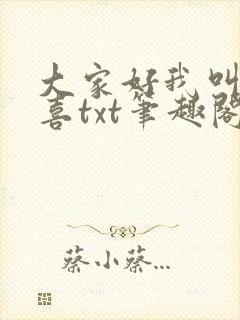 大家好我叫
喜txt笔趣阁
蔡小蔡...